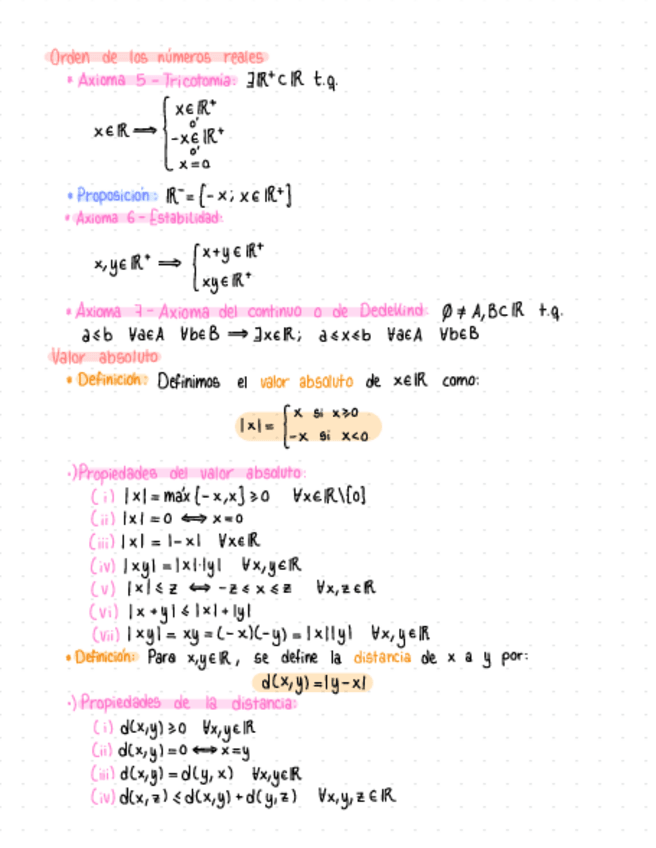 Orden de los números reales
• Axioma 5 - Tricotomía: ∃ℝ⁺⊂ℝ t.q.
x∈ℝ ⟹ { x∈ℝ⁺
ó
-x∈ℝ⁺
ó
x=0
• Proposición: ℝ⁻={-x; x∈ℝ⁺}
• Axioma 6 - Estabilidad:
x,y∈ℝ⁺ ⟹ { x+y∈ℝ⁺
xy∈ℝ⁺
• Axioma 7 - Axioma del continuo o de Dedekind: ∅≠A,B⊂ℝ t.q.
a≤b ∀a∈A ∀b∈B ⟹ ∃x∈ℝ; a≤x≤b ∀a∈A ∀b∈B
Valor absoluto
• Definición: Definimos el valor absoluto de x∈ℝ como:
|x|= { x si x≥0
-x si x<0
·)Propiedades del valor absoluto:
(i) |x|=máx{-x,x}≥0 ∀x∈ℝ\{0}
(ii) |x|=0 ⟺ x=0
(iii) |x|=|-x| ∀x∈ℝ
(iv) |xy|=|x|·|y| ∀x,y∈ℝ
(v) |x|≤z ⟺ -z≤x≤z ∀x,z∈ℝ
(vi) |x+y|≤|x|+|y|
(vii) |xy|=xy=(-x)(-y)=|x||y| ∀x,y∈ℝ
• Definición: Para x,y∈ℝ, se define la distancia de x a y por:
d(x,y)=|y-x|
·)Propiedades de la distancia:
(i) d(x,y)≥0 ∀x,y∈ℝ
(ii) d(x,y)=0 ⟺ x=y
(iii) d(x,y)=d(y,x) ∀x,y∈ℝ
(iv) d(x,z)≤d(x,y)+d(y,z) ∀x,y,z∈ℝ